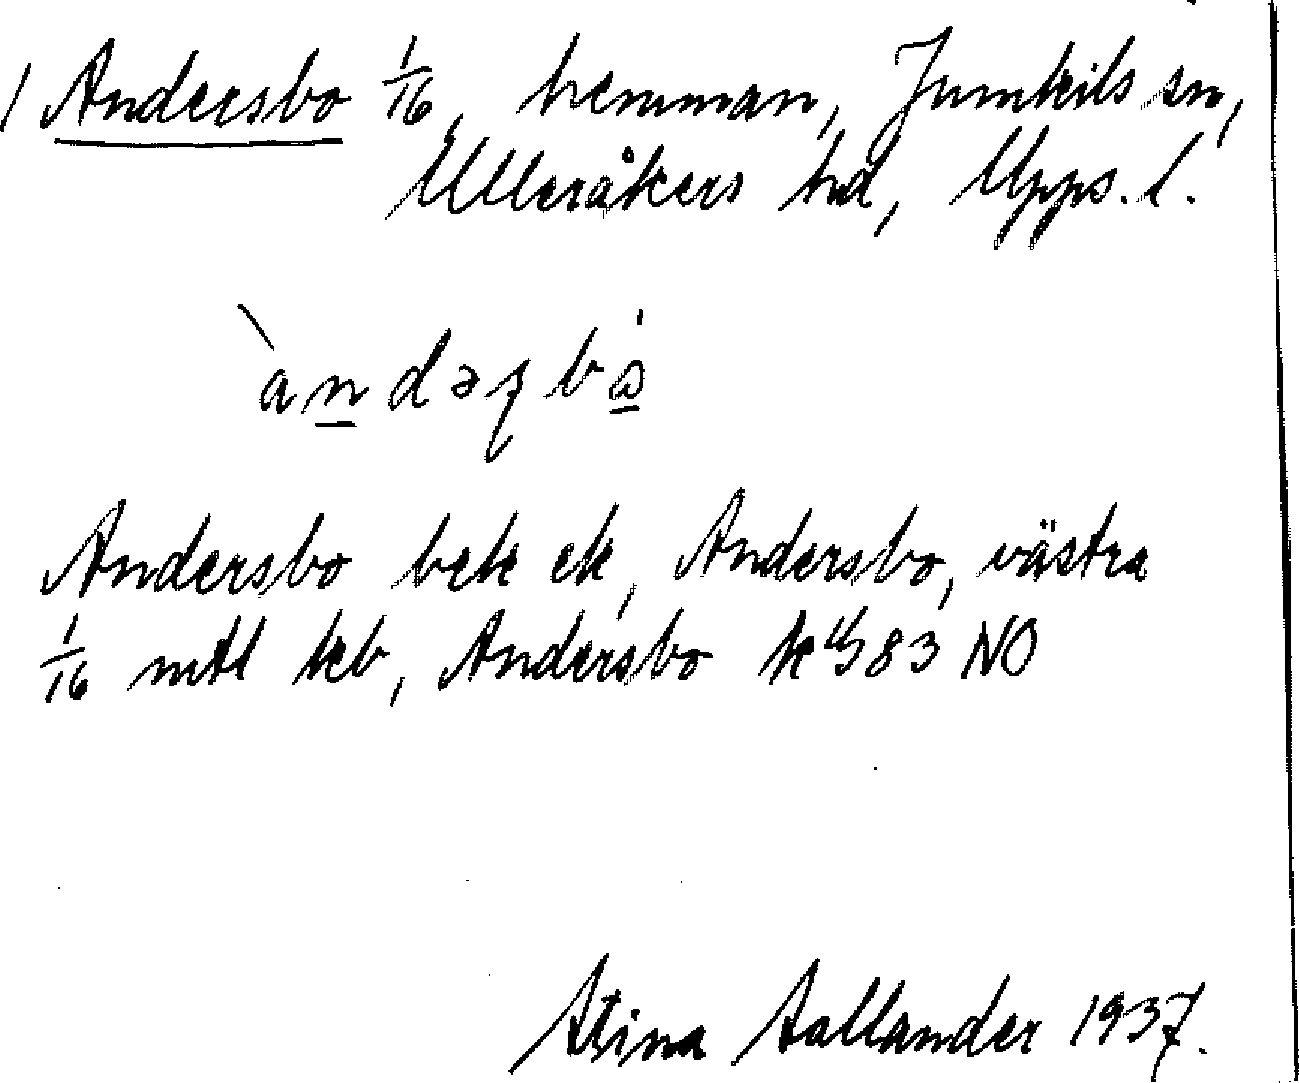 1 Andersbo 1/16, hemman, Jumkils sn,
Ulleråkers hd, Upps. l.
Andersbo bek ek, Andersbo, västra
1/16 mtl keb, Andersbo k 83 NO
Stina Sallander 1937.